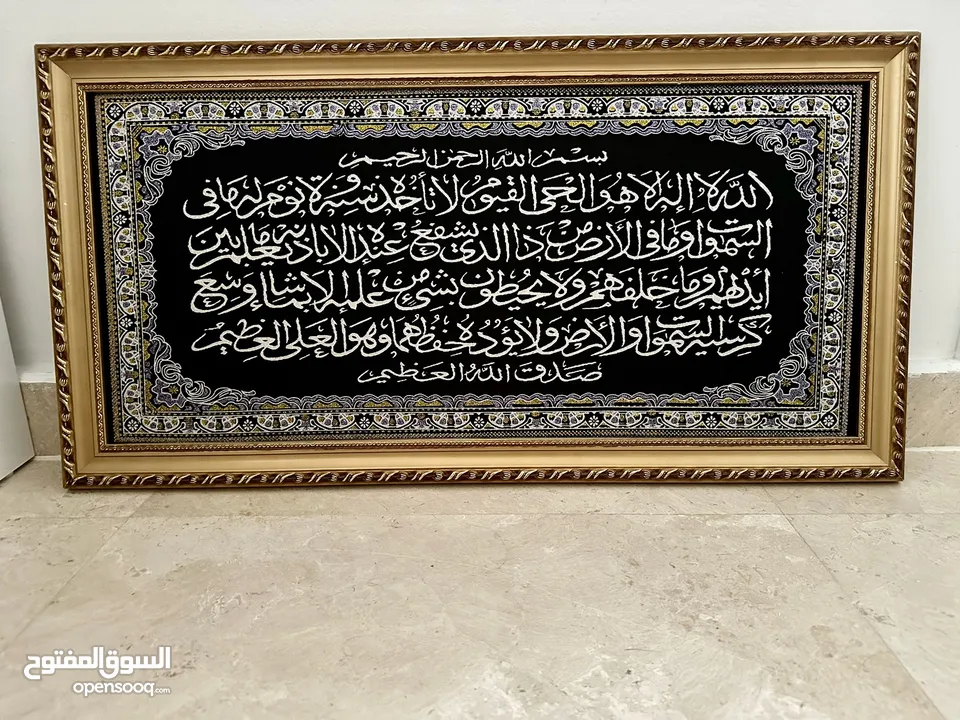 بسم الله الرحمن الرحيم
الله لا إله إلا هو الحي القيوم لا تأخذه سنة ولا نوم له ما في
السموات وما في الأرض من ذا الذي يشفع عنده إلا بإذنه يعلم ما بين
أيديهم وما خلفهم ولا يحيطون بشيء من علمه إلا بما شاء وسع
كرسيه السموات والأرض ولا يؤده حفظهما وهو العلي العظيم
صدق الله العظيم
السوق المفتوح
opensooq.com